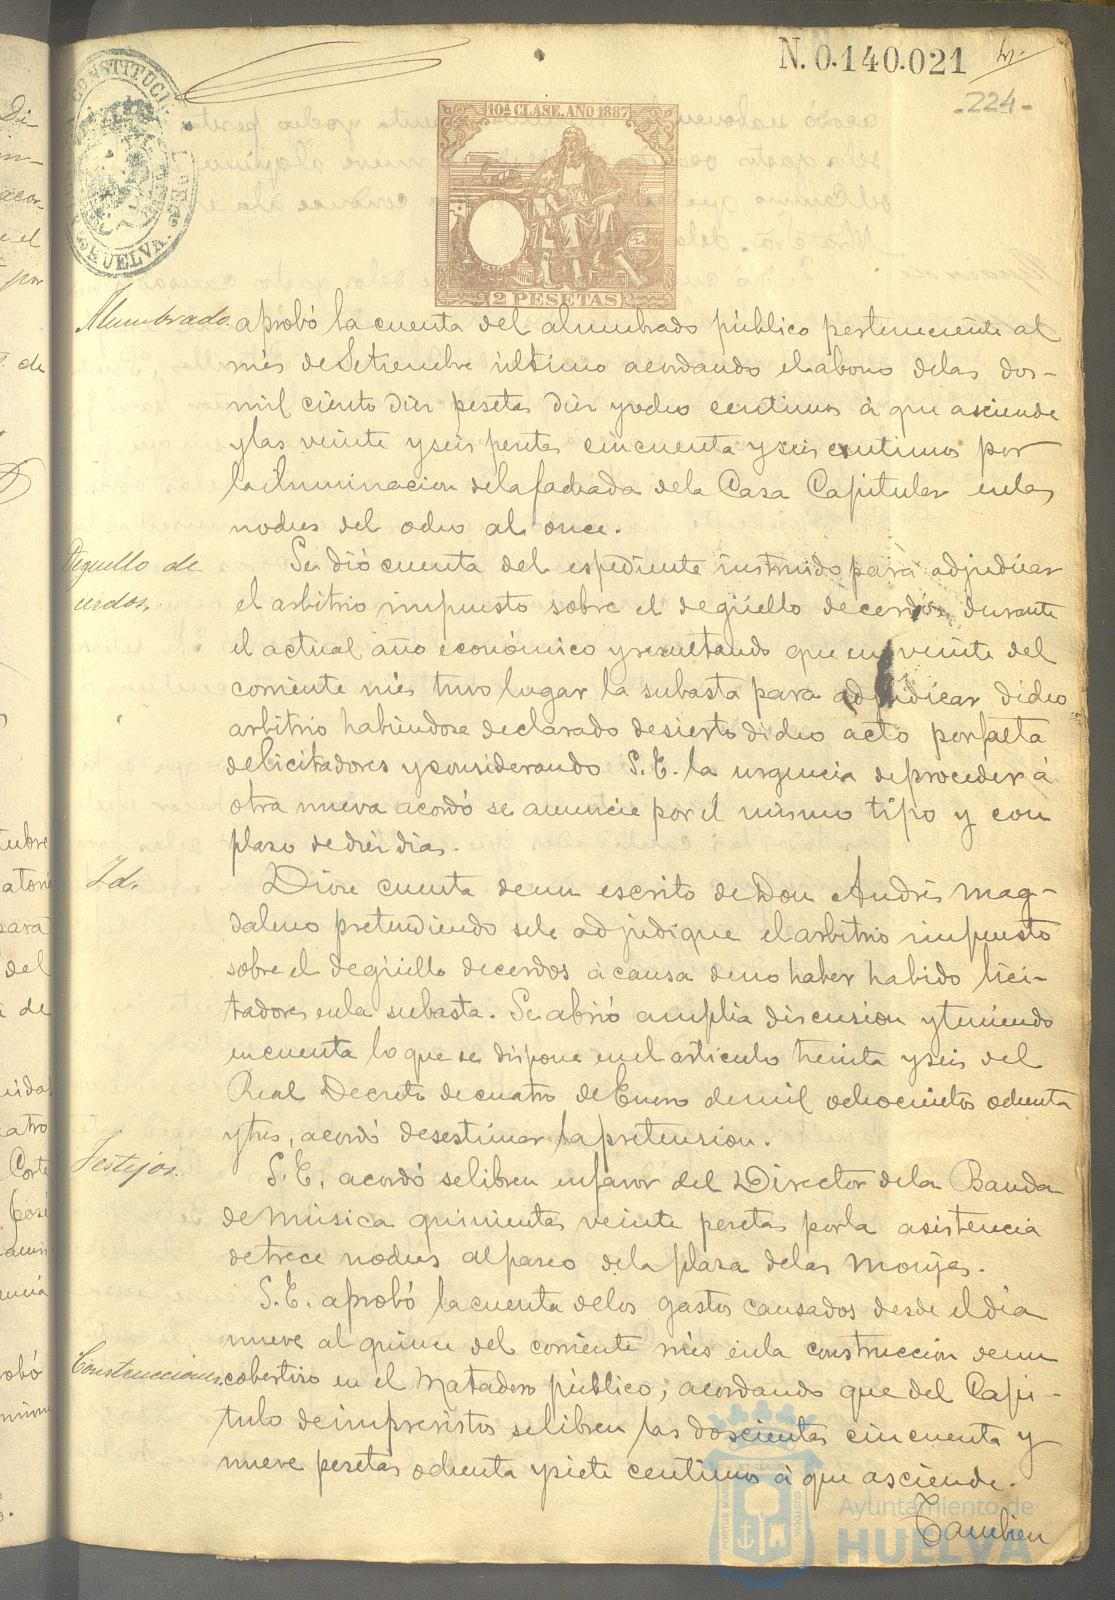 N. 0.140.021
-224-
CONSTITUCI
HUELVA
10ª CLASE. AÑO 1887
2 PESETAS
Alumbrado. aprobó la cuenta del alumbrado público perteneciente al
més de Setiembre último acordando el abono delas dos-
mil ciento diez pesetas diez yocho centimos á que asciende
ylas veinte yseis pesetas cincuenta yseis centimos por
la iluminacion dela fachada dela Casa Capitular enlas
noches del ocho al once.
Deguello de
cerdos.
Se dió cuenta del espediente instruido para adjudicar
el arbitrio impuesto sobre el degüello de cerdos durante
el actual año económico yresultando que en veinte del
corriente més tuvo lugar la subasta para adjudicar dicho
arbitrio habiendose declarado desierto dicho acto porfalta
delicitadores yconsiderando S.E. la urgencia deproceder á
otra nueva acordó se anuncie por el mismo tipo y con
plazo de diez dias.
Id.
Diose cuenta deun escrito de Don Andrés Mag-
daleno pretendiendo sele adjudique el arbitrio impuesto
sobre el degüello decerdos á causa deno haber habido lici-
tadores enla subasta. Se abrió amplia discusion yteniendo
en cuenta lo que se dispone en el articulo treinta yseis del
Real Decreto de cuatro de Enero demil ochocientos ochenta
ytres, acordó desestimar la pretension.
Festejos.
S.E. acordó selibren enfavor del Director dela Banda
de Música quinientas veinte pesetas porla asistencia
detrece noches al paseo dela plaza delas Monjas.
S.E. aprobó la cuenta delos gastos causados desde el dia
nueve al quince del corriente més enla construccion deun
Construcciones. cobertizo en el Matadero público; acordando que del Capi-
tulo deimprevistos selibren las doscientas cincuenta y
nueve pesetas ochenta ysiete centimos á que asciende.
Tambien
Ayuntamiento de
HUELVA